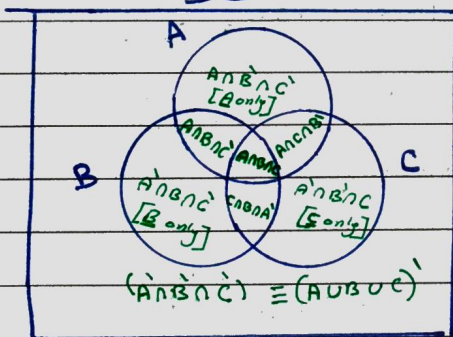 A
A∩B'∩C'
[A only]
A∩B∩C'
A∩B∩C
A∩C∩B'
B
C
A'∩B∩C'
[B only]
C∩B∩A'
A'∩B'∩C
[C only]
(A'∩B'∩C') ≡ (A∪B∪C)'